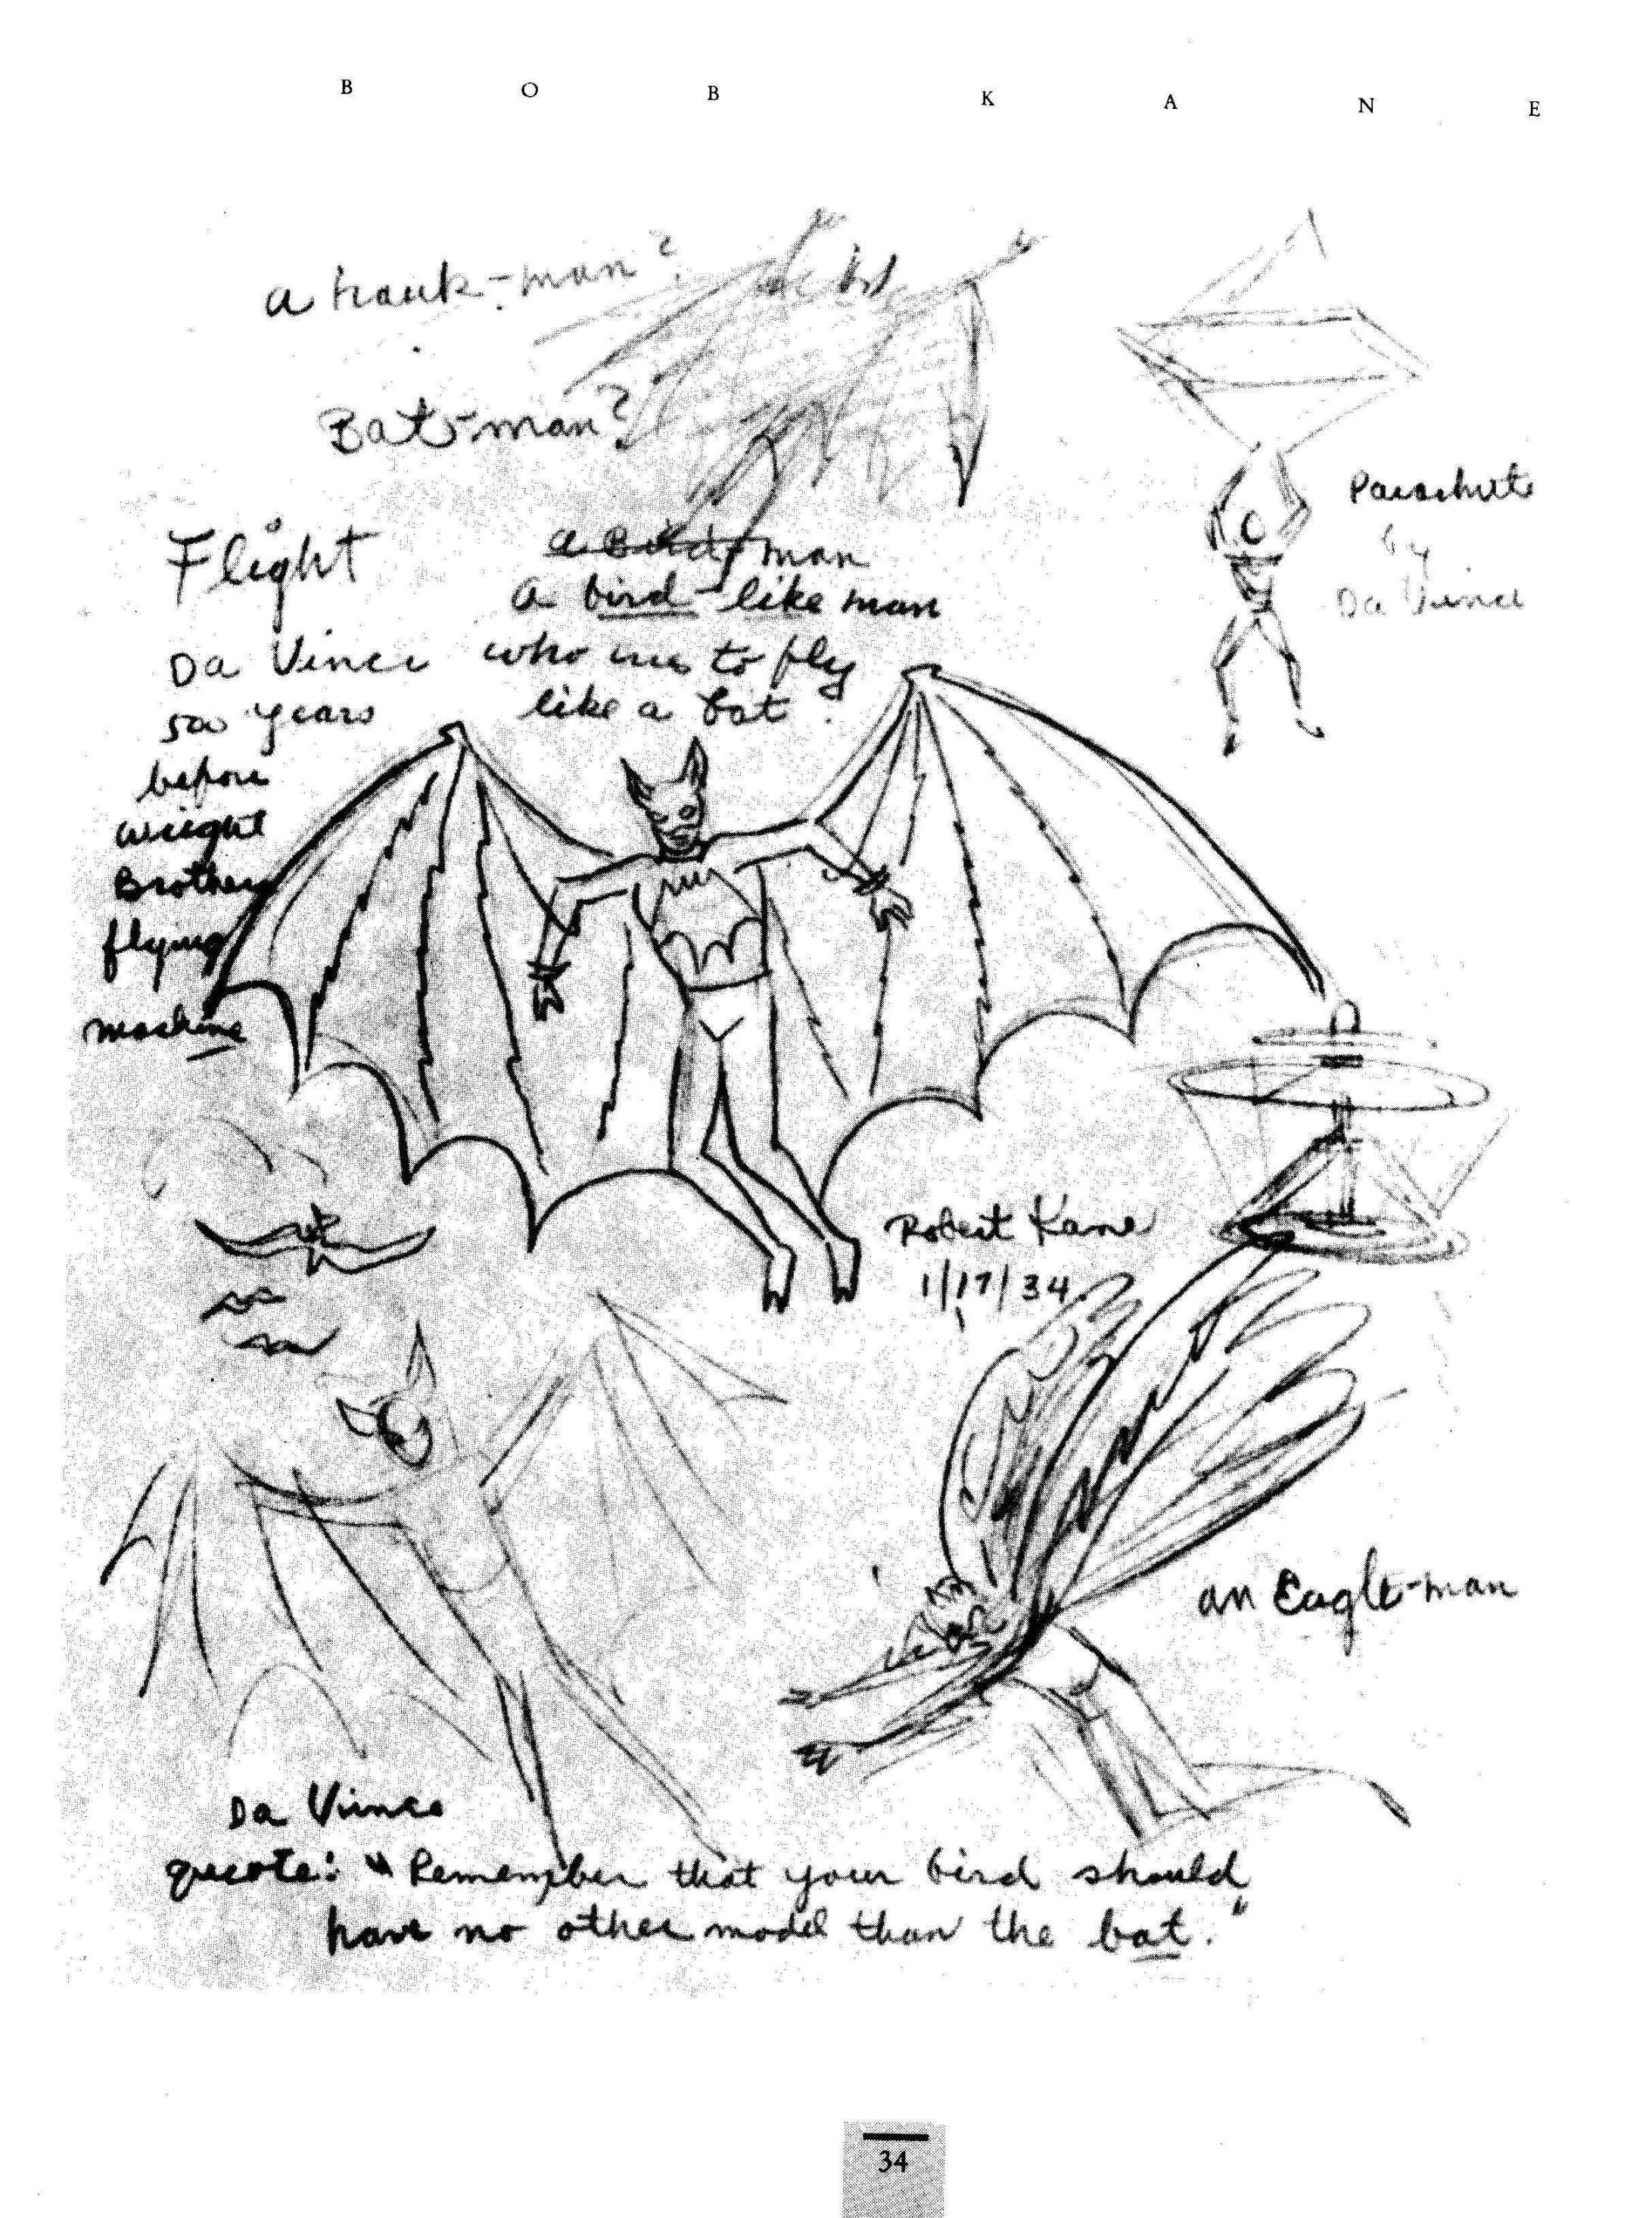 BOB KANE
a hawk-man?
Bat-man?
Flight
Da Vinci
500 years
before
wright
Brothers
flying
machine
a Bird-man
A bird-like man
who to fly
like a bat.
Parachute
by
Da Vinci
Robert Kane
1/17/34.
an Eagle-man
Da Vince
quote: "Remember that your bird should
have no other model than the bat."
34